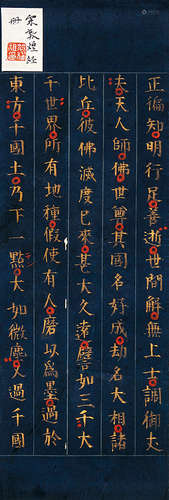 宋敦煌經
冊
正徧知明行足善逝世間解無上士調御丈
夫天人師佛世尊其國名好成劫名大相諸
比丘彼佛滅度已來甚大久遠譬如三千大
千世界所有地種假使有人磨以爲墨過於
東方千國土乃下一點大如微塵又過千國